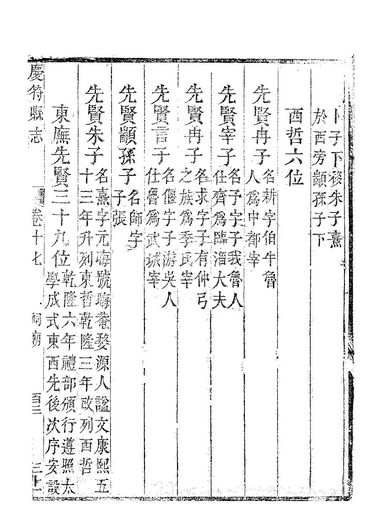 卜子下移朱子熹
於西旁顓孫子下
西哲六位
先賢冉子名耕字伯牛魯
人爲中都宰
先賢宰子名予字子我魯人
仕齊爲臨淄大夫
先賢冉子名求字子有仲弓
之族爲季氏宰
先賢言子名偃字子游吳人
仕魯爲武城宰
先賢顓孫子名師字
子張
先賢朱子名熹字元晦號晦菴婺源人諡文康熙五
十三年升列東哲乾隆三年改列西哲
東廡先賢三十九位乾隆六年禮部頒行遵照太
學成式東西先後次序安設
慶符縣志
卷十七
祠廟